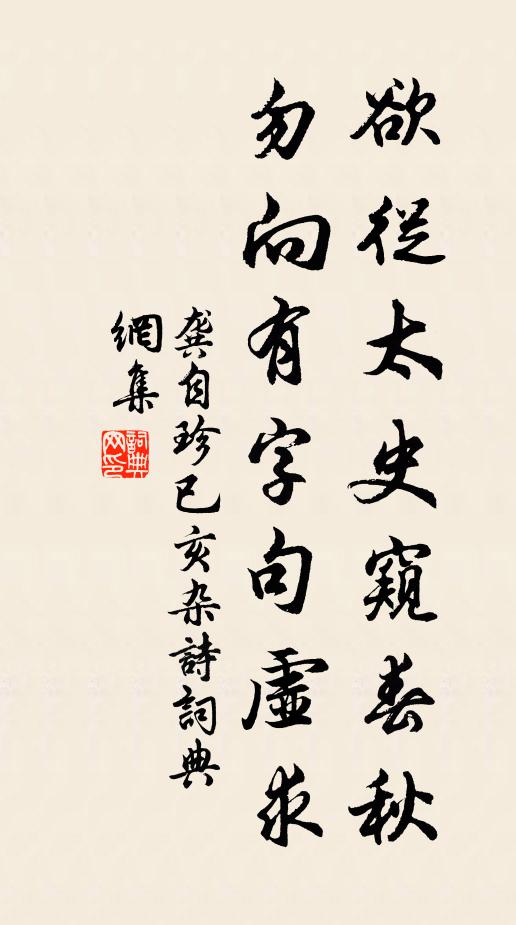 欲從太史窺春秋
勿向有字句虛求
龔自珍己亥杂詩詞典
網集
詞典網印